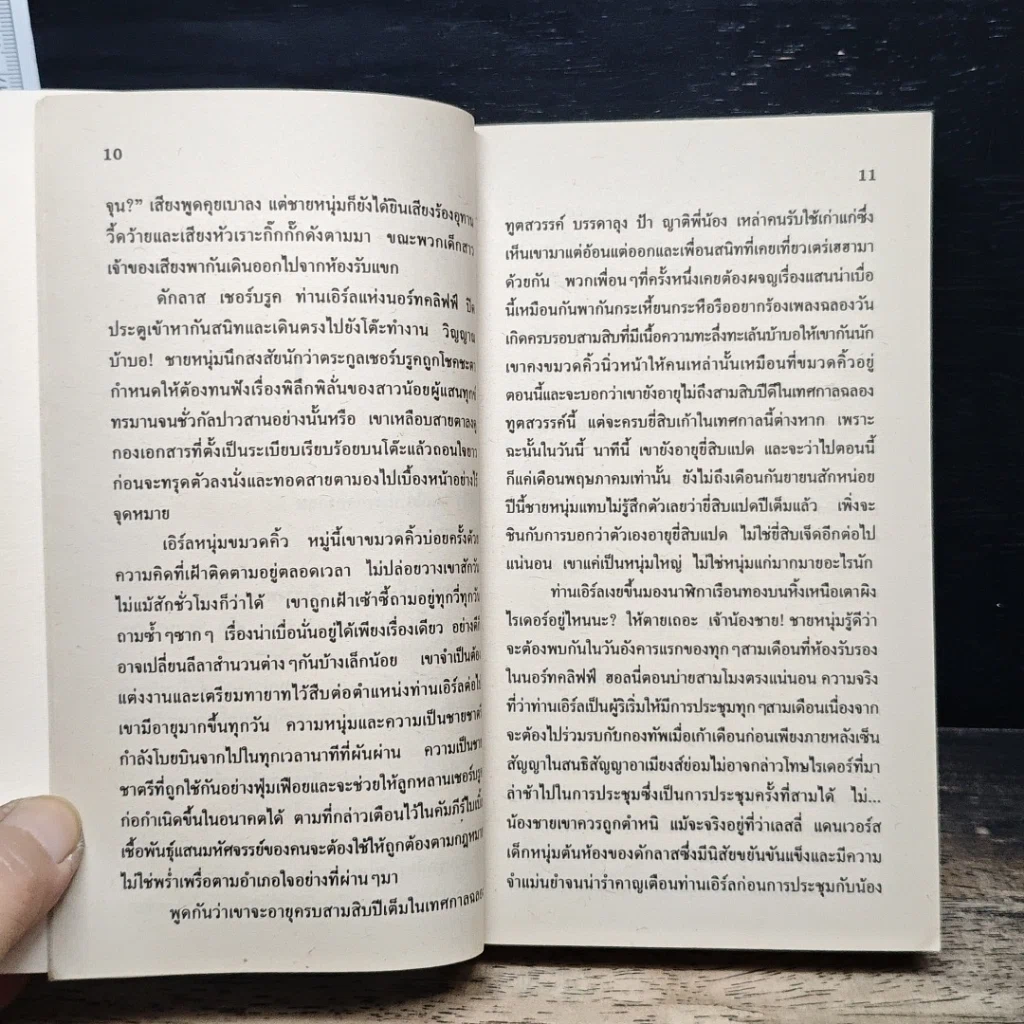 10
จุน?” เสียงพูดคุยเบาลง แต่ชายหนุ่มก็ยังได้ยินเสียงร้องอุทาน
วี้ดว้ายและเสียงหัวเราะกิ๊กกั๊กดังตามมา ขณะพวกเด็กสาว
เจ้าของเสียงพากันเดินออกไปจากห้องรับแขก
ดักลาส เชอร์บรูค ท่านเอิร์ลแห่งนอร์ทคลิฟฟ์ ปิด
ประตูเข้าหากันสนิทและเดินตรงไปยังโต๊ะทำงาน วิญญาณ
บ้าบอ! ชายหนุ่มนึกสงสัยนักว่าตระกูลเชอร์บรูคถูกโชคชะตา
กำหนดให้ต้องทนฟังเรื่องพิลึกพิลั่นของสาวน้อยผู้แสนทุกข์
ทรมานจนชั่วกัลปาวสานอย่างนั้นหรือ เขาเหลือบสายตาลงดู
กองเอกสารที่ตั้งเป็นระเบียบเรียบร้อยบนโต๊ะแล้วถอนใจยาว
ก่อนจะทรุดตัวลงนั่งและทอดสายตามองไปเบื้องหน้าอย่างไร้
จุดหมาย
เอิร์ลหนุ่มขมวดคิ้ว หมู่นี้เขาขมวดคิ้วบ่อยครั้งด้วย
ความคิดที่เฝ้าติดตามอยู่ตลอดเวลา ไม่ปล่อยวางเขาสักวัน
ไม่แม้สักชั่วโมงก็ว่าได้ เขาถูกเฝ้าเซ้าซี้ถามอยู่ทุกวี่ทุกวัน
ถามซ้ำๆซากๆ เรื่องน่าเบื่อนั่นอยู่ได้เพียงเรื่องเดียว อย่างดีก็
อาจเปลี่ยนลีลาสำนวนต่างๆกันบ้างเล็กน้อย เขาจำเป็นต้อง
แต่งงานและเตรียมทายาทไว้สืบต่อตำแหน่งท่านเอิร์ลต่อไป
เขามีอายุมากขึ้นทุกวัน ความหนุ่มและความเป็นชายชาตรี
กำลังโบยบินจากไปในทุกเวลานาทีที่ผันผ่าน ความเป็นชาย
ชาตรีที่ถูกใช้กันอย่างฟุ่มเฟือยและจะช่วยให้ลูกหลานเชอร์บรูค
ก่อกำเนิดขึ้นในอนาคตได้ ตามที่กล่าวเตือนไว้ในคัมภีร์ไบเบิ้ล
เชื้อพันธุ์แสนมหัศจรรย์ของคนจะต้องใช้ให้ถูกต้องตามกฎหมาย
ไม่ใช่พร่ำเพรื่อตามอำเภอใจอย่างที่ผ่านๆมา
พูดกันว่าเขาจะอายุครบสามสิบปีเต็มในเทศกาลฉลอง
11
ทูตสวรรค์ บรรดาลุง ป้า ญาติพี่น้อง เหล่าคนรับใช้เก่าแก่ซึ่ง
เห็นเขามาแต่อ้อนแต่ออกและเพื่อนสนิทที่เคยเที่ยวเตร่เฮฮามา
ด้วยกัน พวกเพื่อนๆที่ครั้งหนึ่งเคยต้องผจญเรื่องแสนน่าเบื่อ
นี้เหมือนกันพากันกระเหี้ยนกระหือรืออยากร้องเพลงฉลองวัน
เกิดครบรอบสามสิบที่มีเนื้อความทะลึ่งทะเล้นบ้าบอให้เขากันนัก
เขาคงขมวดคิ้วนิ่วหน้าให้คนเหล่านั้นเหมือนที่ขมวดคิ้วอยู่
ตอนนี้และจะบอกว่าเขายังอายุไม่ถึงสามสิบปีดีในเทศกาลฉลอง
ทูตสวรรค์นี้ แต่จะครบยี่สิบเก้าในเทศกาลนี้ต่างหาก เพราะ
ฉะนั้นในวันนี้ นาทีนี้ เขายังอายุยี่สิบแปด และจะว่าไปตอนนี้
ก็แค่เดือนพฤษภาคมเท่านั้น ยังไม่ถึงเดือนกันยายนสักหน่อย
ปีนี้ชายหนุ่มแทบไม่รู้สึกตัวเลยว่ายี่สิบแปดปีเต็มแล้ว เพิ่งจะ
ชินกับการบอกว่าตัวเองอายุยี่สิบแปด ไม่ใช่ยี่สิบเจ็ดอีกต่อไป
แน่นอน เขาแค่เป็นหนุ่มใหญ่ ไม่ใช่หนุ่มแก่มากมายอะไรนัก
ท่านเอิร์ลเงยขึ้นมองนาฬิกาเรือนทองบนหิ้งเหนือเตาผิง
ไรเดอร์อยู่ไหนนะ? ให้ตายเถอะ เจ้าน้องชาย! ชายหนุ่มรู้ดีว่า
จะต้องพบกันในวันอังคารแรกของทุกๆสามเดือนที่ห้องรับรอง
ในนอร์ทคลิฟฟ์ ฮอลนี่ตอนบ่ายสามโมงตรงแน่นอน ความจริง
ที่ว่าท่านเอิร์ลเป็นผู้ริเริ่มให้มีการประชุมทุกๆสามเดือนเนื่องจาก
จะต้องไปร่วมรบกับกองทัพเมื่อเก้าเดือนก่อนเพียงภายหลังเซ็น
สัญญาในสนธิสัญญาอาเมียงส์ย่อมไม่อาจกล่าวโทษไรเดอร์ที่มา
ล่าช้าไปในการประชุมซึ่งเป็นการประชุมครั้งที่สามได้ ไม่...
น้องชายเขาควรถูกตำหนิ แม้จะจริงอยู่ที่ว่าเลสลี่ แดนเวอร์ส
เด็กหนุ่มต้นห้องของดักลาสซึ่งมีนิสัยขยันขันแข็งและมีความ
จำแม่นยำจนน่ารำคาญเตือนท่านเอิร์ลก่อนการประชุมกับน้อง